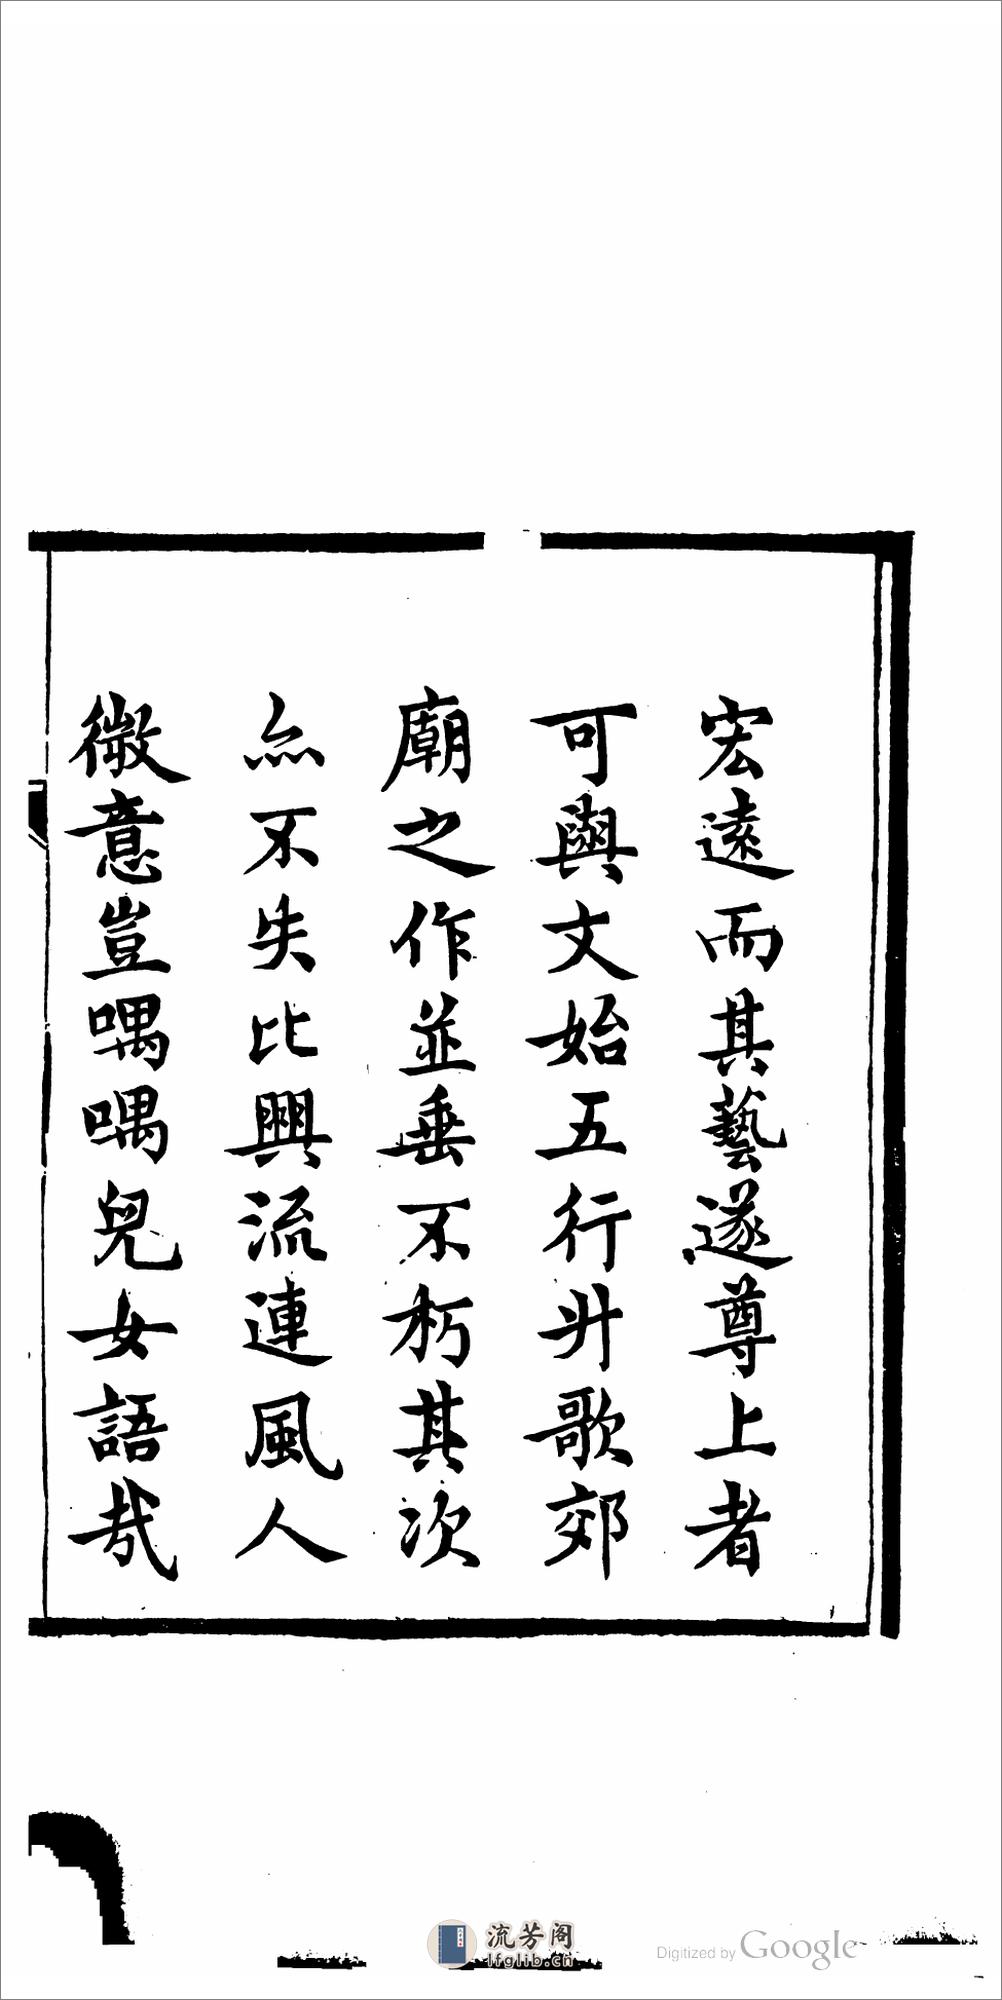 宏遠而其藝遂尊上者
可與文始五行升歌郊
廟之作並垂不朽其次
亦不失比興流連風人
微意豈喁喁兒女語哉
流芳阁
lfglib.cn
Digitized by Google